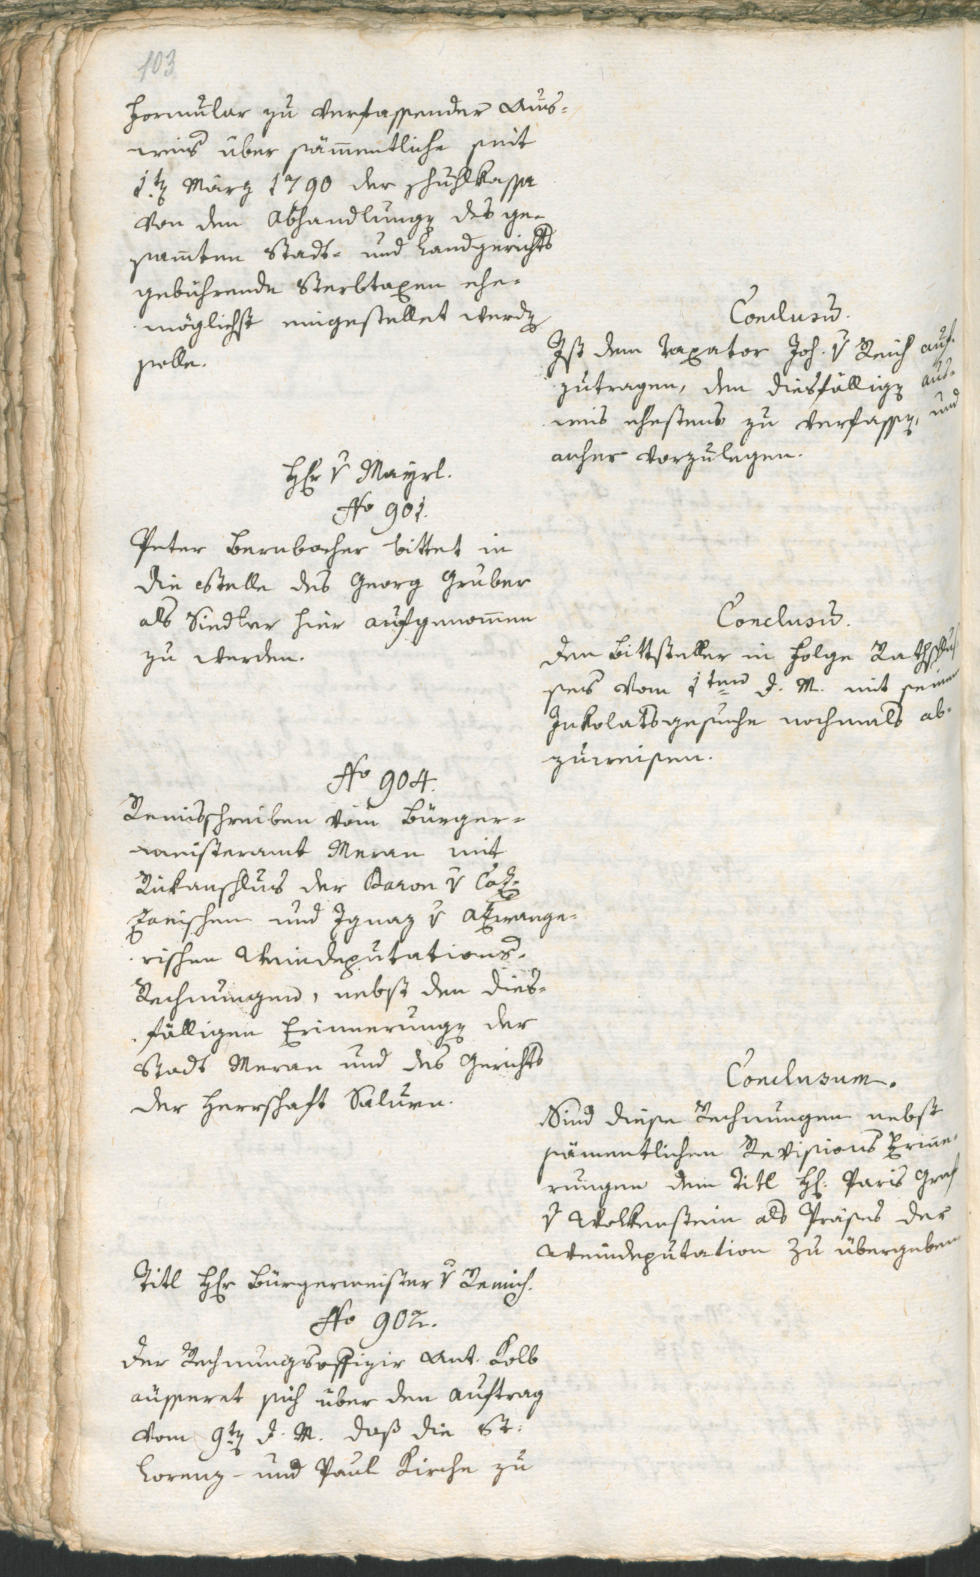 103
Formular zu verfassender Aus-
weis über sämentliche seit
1ten März 1790 der Schuhlkassa
von den Abhandlungen des ge-
samten Stadt- und Landgerichts
gebührende Sterbtaxen ehe-
möglichst eingestellet werden
solle.
Conclusum.
Ist dem Taxator Joh. v Reich auf-
zutragen, den diesfälligen Aus-
weis ehestens zu verfassen, und
anher vorzulegen.
Hr v Mayrl.
No 901.
Peter Bernbacher bittet in
die Stelle des Georg Gruber
als Siedler hier aufgenommen
zu werden.
Conclusum.
Den Bittsteller in Folge Rathsschlus
ses vom 1ten d. M. mit seinem
Inkolatsgesuche nochmals ab-
zuweisen.
No 904.
Remisschreiben vom Bürger-
meisteramt Meran mit
Rükanschlus der Baron v
und Ignaz v
rischen Weindeputations-
Rechnungen, nebst den dies-
fälligen Erinnerungen der
Stadt Meran und des Gerichts
der Herrschaft Salurn.
Conclusum.
Sind diese Rechnungen nebst
sämentlichen Revisions Erinne-
rungen dem Titl H. Paris Graf
v Wolkenstein als Präses der
Weindeputation zu übergeben
Titl Hr Bürgermeister v Remich.
No 902.
Der Rechnungsoffizir Ant. Kolb
äusseret sich über den Auftrag
vom 9ten d. M. daß die St.
Lorenz- und Paul Kirche zu